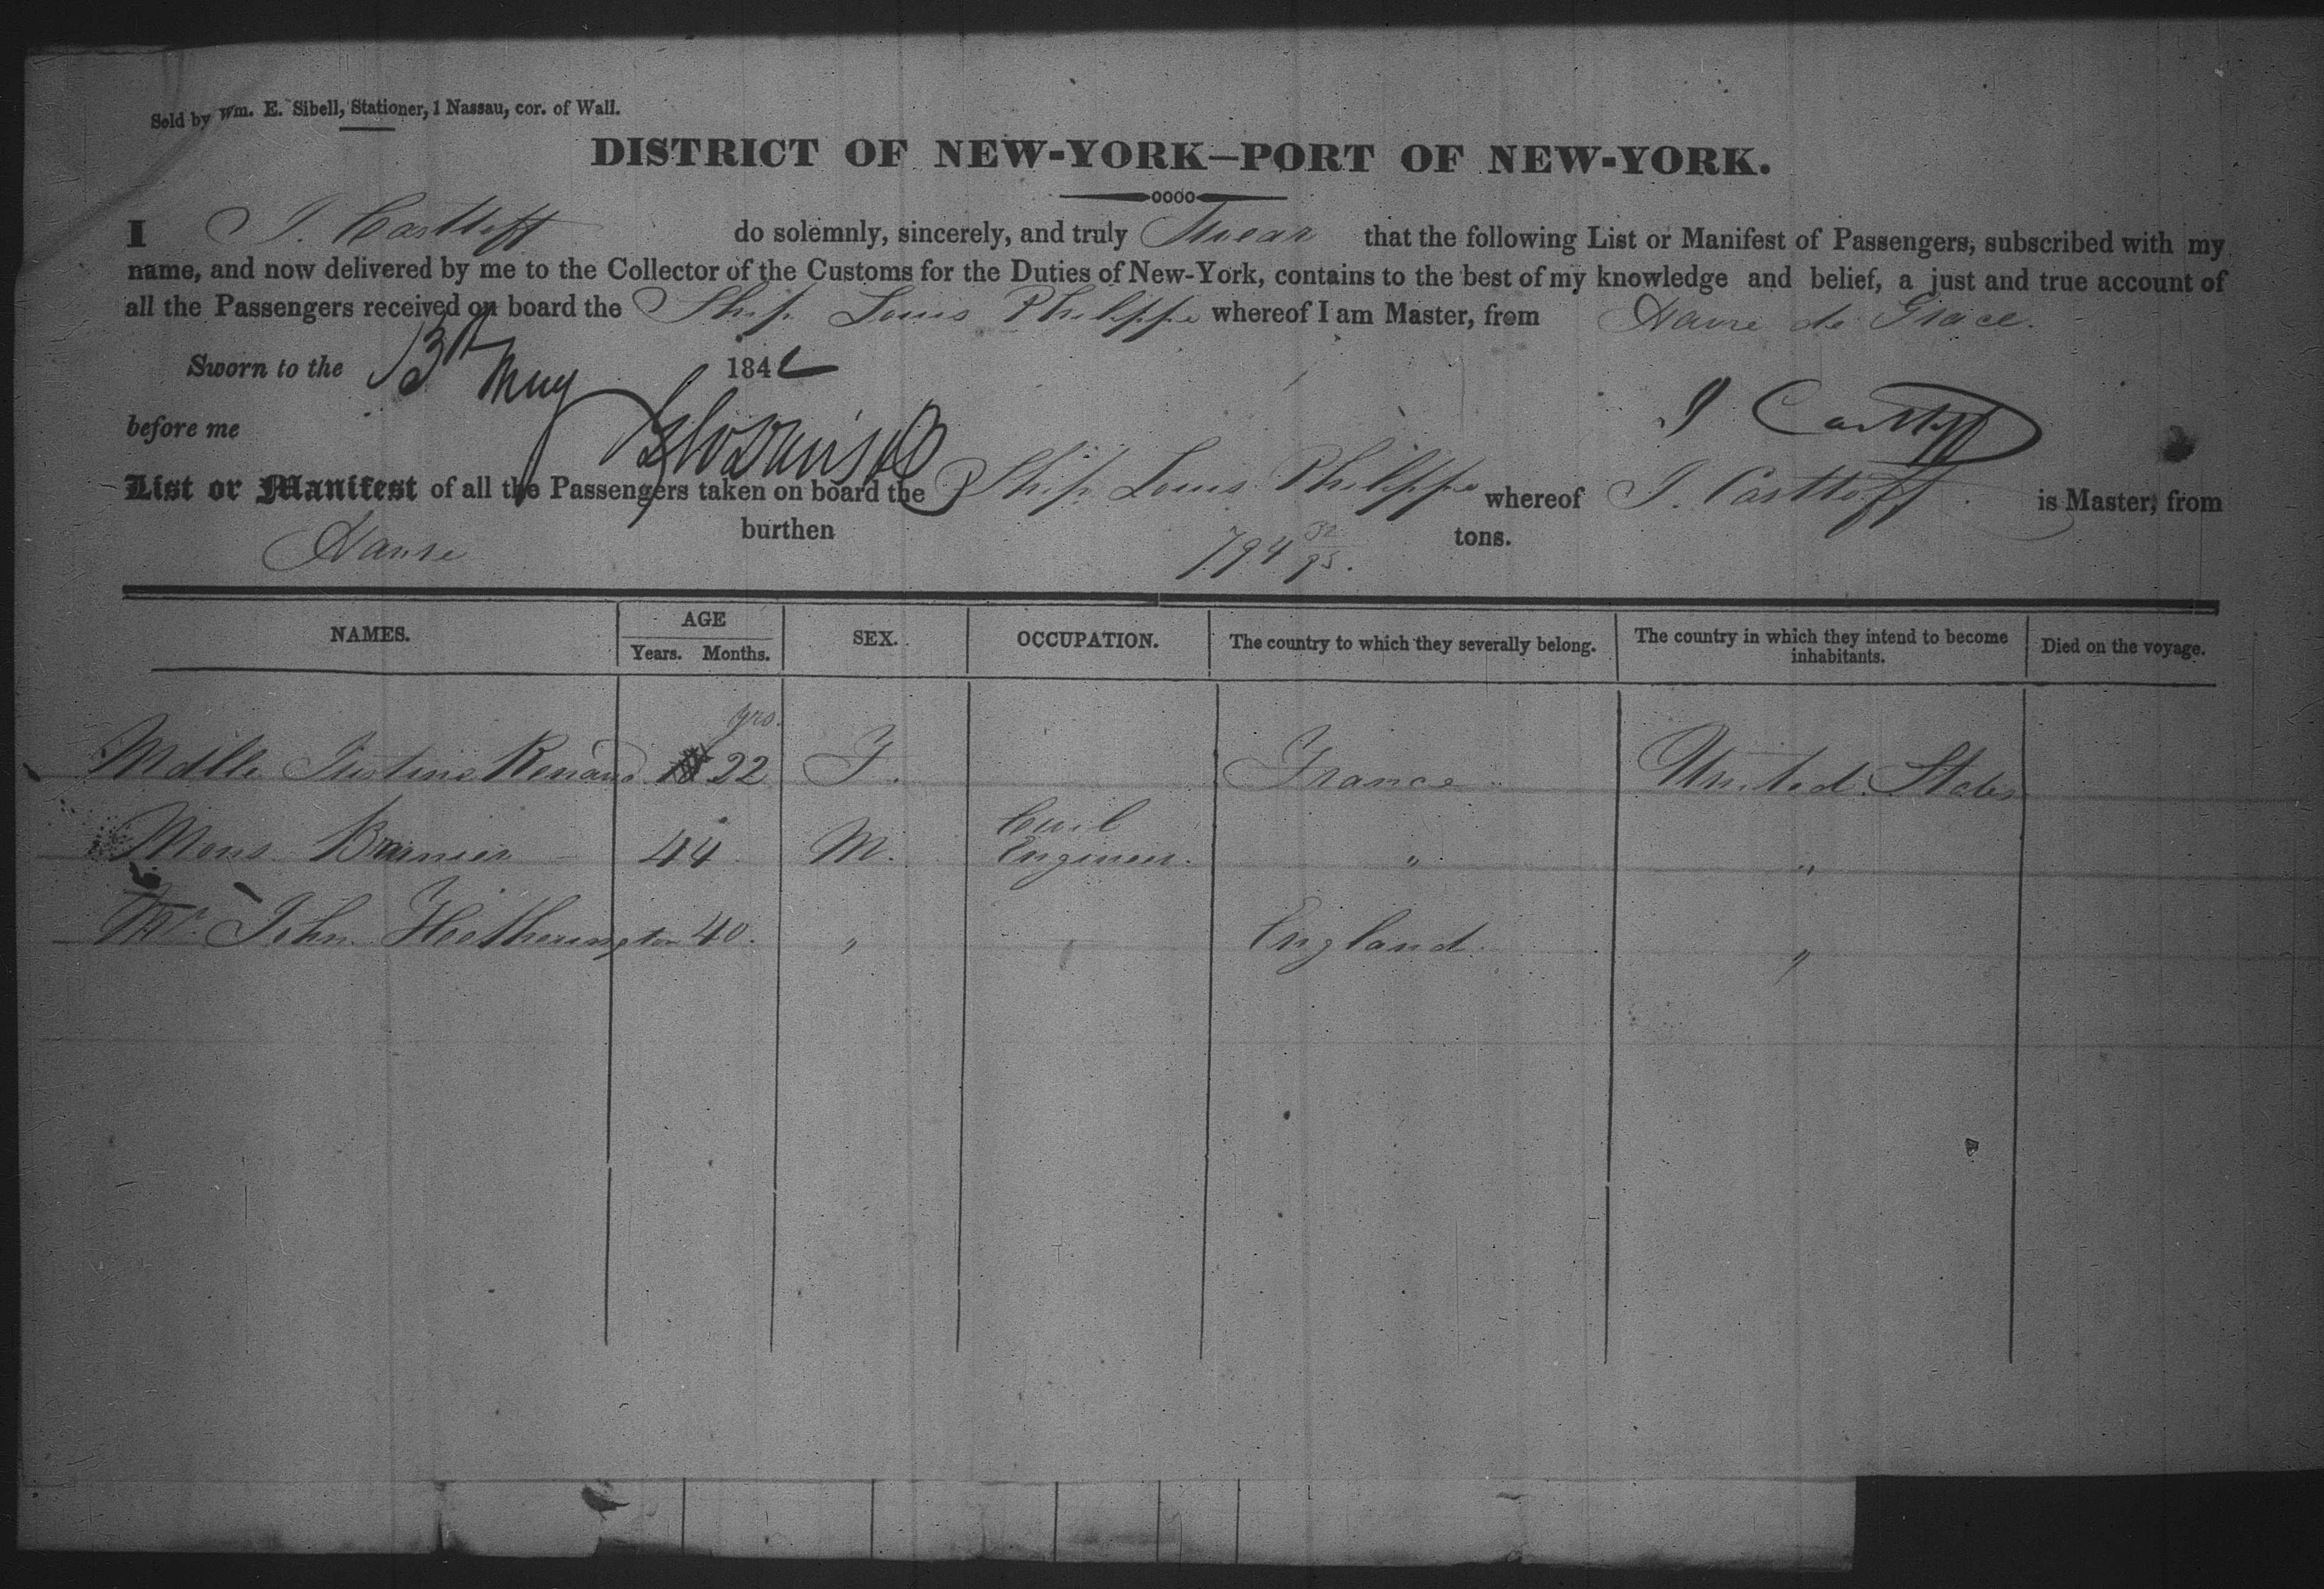 Sold by Wm. E. Sibell, Stationer, 1 Nassau, cor. of Wall.
DISTRICT OF NEW-YORK—PORT OF NEW-YORK.
I J. Castoff do solemnly, sincerely, and truly Swear that the following List or Manifest of Passengers, subscribed with my
name, and now delivered by me to the Collector of the Customs for the Duties of New-York, contains to the best of my knowledge and belief, a just and true account of
all the Passengers received on board the Ship Louis Philippe whereof I am Master, from Havre de Grace.
Sworn to the 13th May 1842
before me
J Castoff
List or Manifest of all the Passengers taken on board the Ship Louis Philippe whereof J. Castoff is Master, from
Havre burthen 794 tons.
NAMES. AGE Years. Months. SEX. OCCUPATION. The country to which they severally belong. The country in which they intend to become inhabitants. Died on the voyage.
yrs.
Mdlle Justine Renard 22 F. France United States
Mons 44 M. Civil Engineer. " "
Mr. John Hetherington 40. " England "